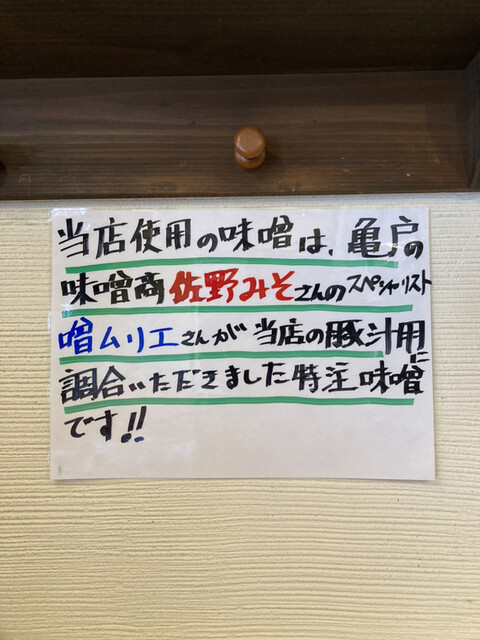 当店使用の味噌は、亀戸の
味噌商佐野みそさんのスペシャリスト
噌ムリエさんが当店の豚汁用に
調合いただきました特注味噌
です!!